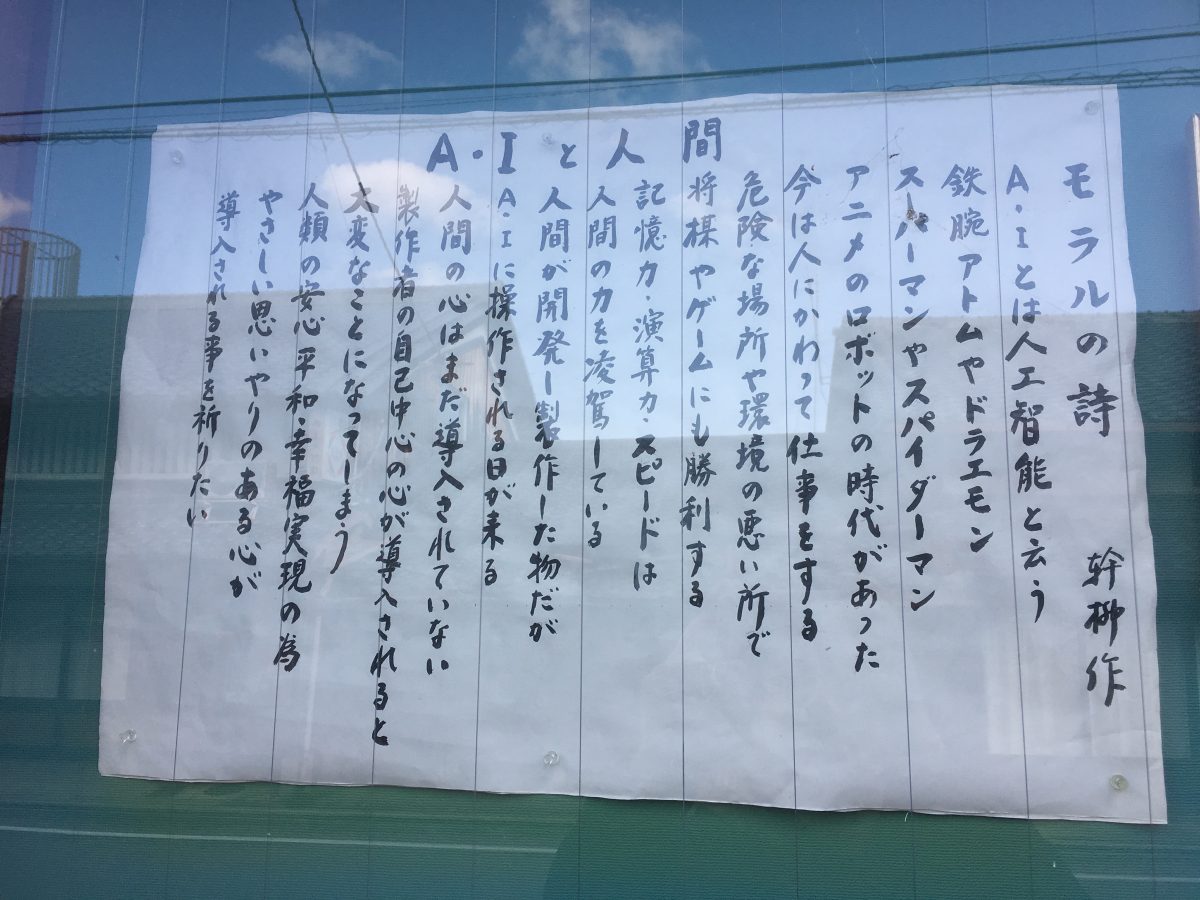 A・Iと人間
モラルの詩 幹柳作
A・Iとは人工智能と云う
鉄腕アトムやドラエモン
スーパーマンやスパイダーマン
アニメのロボットの時代があった
今は人にかわって仕事をする
危険な場所や環境の悪い所で
将棋やゲームにも勝利する
記憶力・演算力・スピードは
人間の力を凌駕している
人間が開発し製作した物だが
A・Iに操作される日が来る
人間の心はまだ導入されていない
製作者の自己中心の心が導入されると
大変なことになってしまう
人類の安心平和・幸福実現の為
やさしい思いやりのある心が
導入される事を祈りたい